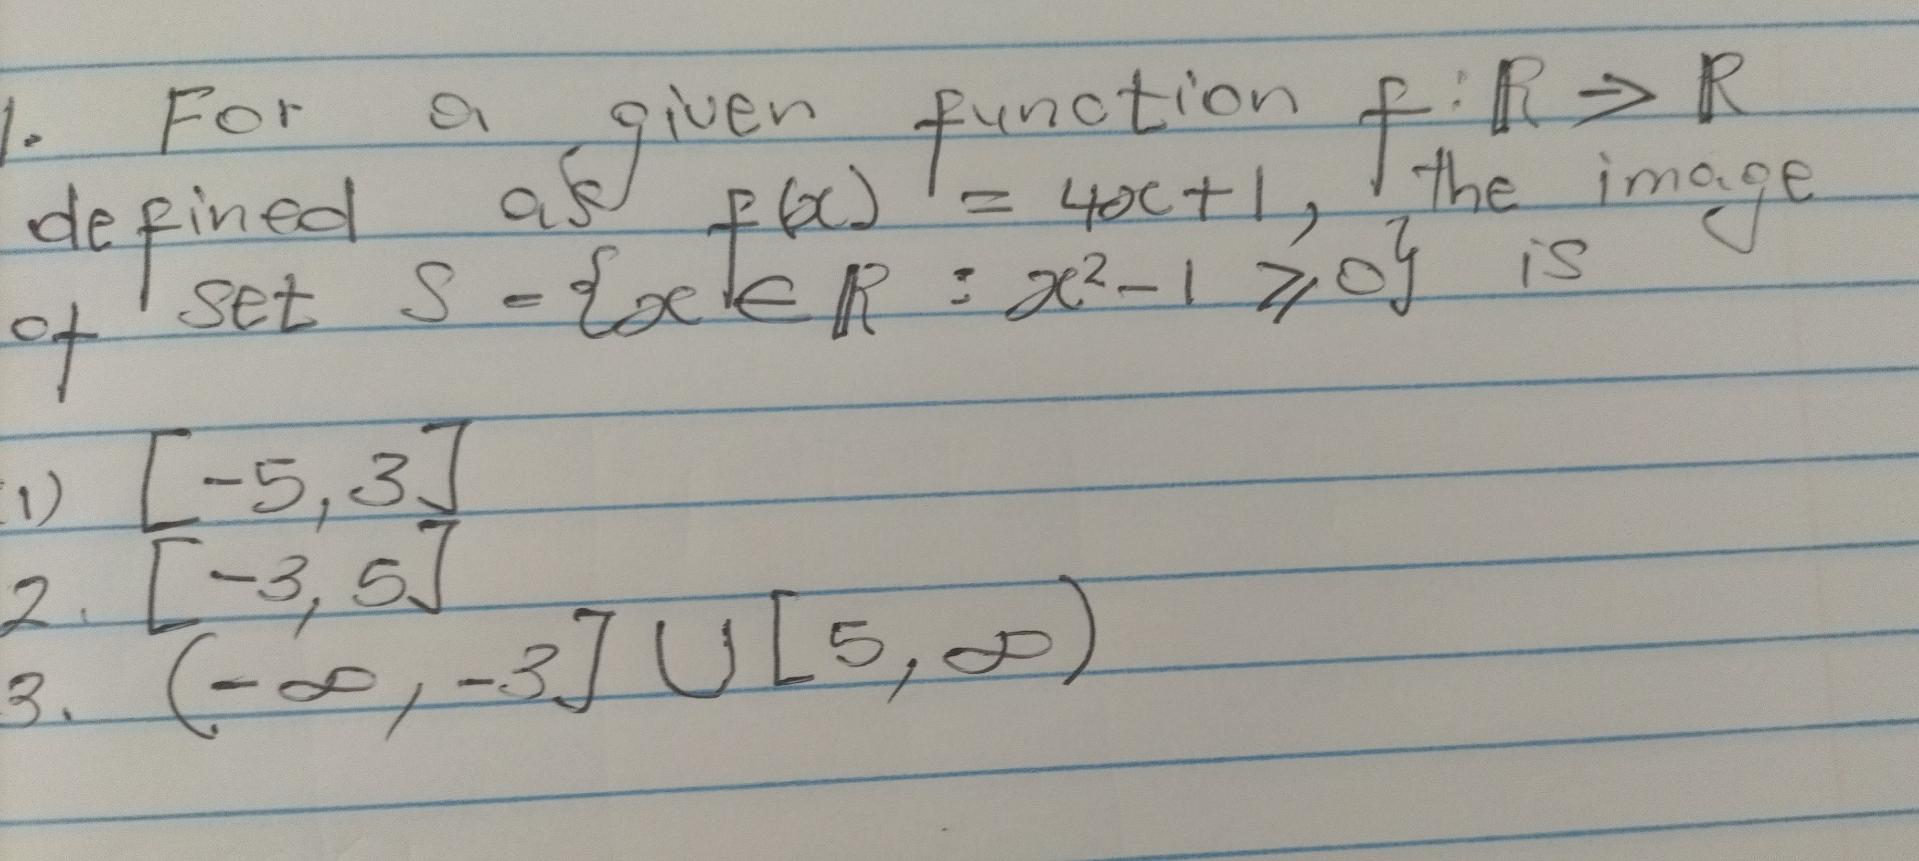 1. For a given function f: ℝ → ℝ
defined as f(x) = 4x+1, the image
of set S = {x ∈ ℝ : x² - 1 ⩾ 0} is
1) [-5, 3]
2. [-3, 5]
3. (-∞, -3] ∪ [5, ∞)